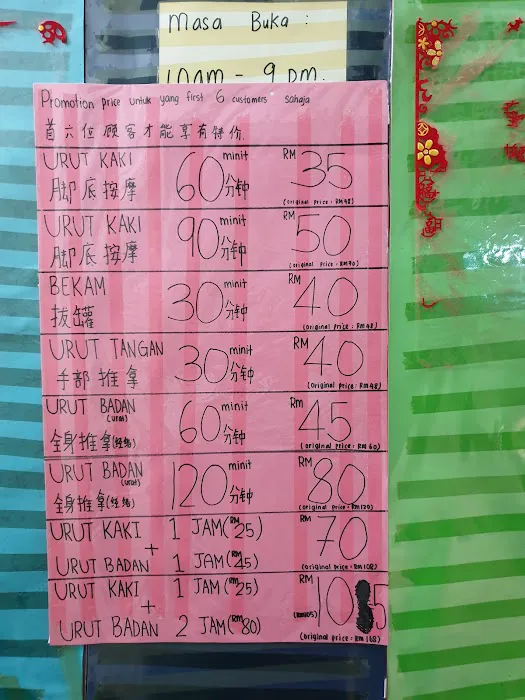 Masa Buka :
10am - 9 pm.
Promotion price untuk yang first 6 customers sahaja
首六位顾客才能享有特价.
URUT KAKI 60 minit RM 35
脚底按摩 分钟 (original Price : RM48)
URUT KAKI 90 minit RM 50
脚底按摩 分钟 (original Price : RM90)
BEKAM 30 minit RM 40
拔罐 分钟 (original Price : RM48)
URUT TANGAN 30 minit RM 40
手部推拿 分钟 (original Price : RM48)
URUT BADAN 60 minit RM 45
(urat)
全身推拿(经络) 分钟 (original Price : RM 60)
URUT BADAN 120 minit RM 80
(urat)
全身推拿(经络) 分钟 (original Price : RM120)
URUT KAKI 1 JAM (RM 25) RM 70
+
URUT BADAN 1 JAM (RM 45) (original price : RM 108)
URUT KAKI 1 JAM (RM 25) RM 105
+ (RM105)
URUT BADAN 2 JAM (RM 80) (original price : RM 168)